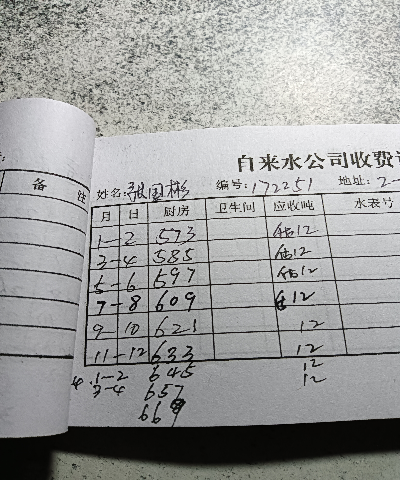 自来水公司收费
备 注
姓名:张国彬 编号:172251 地址:2-
月 日 厨房 卫生间 应收吨 水表号
1-2 573 估12
3-4 585 估12
5-6 597 估12
7-8 609 估12
9-10 621 12
11-12 633 12
1-2 645 12
3-4 657 12
669